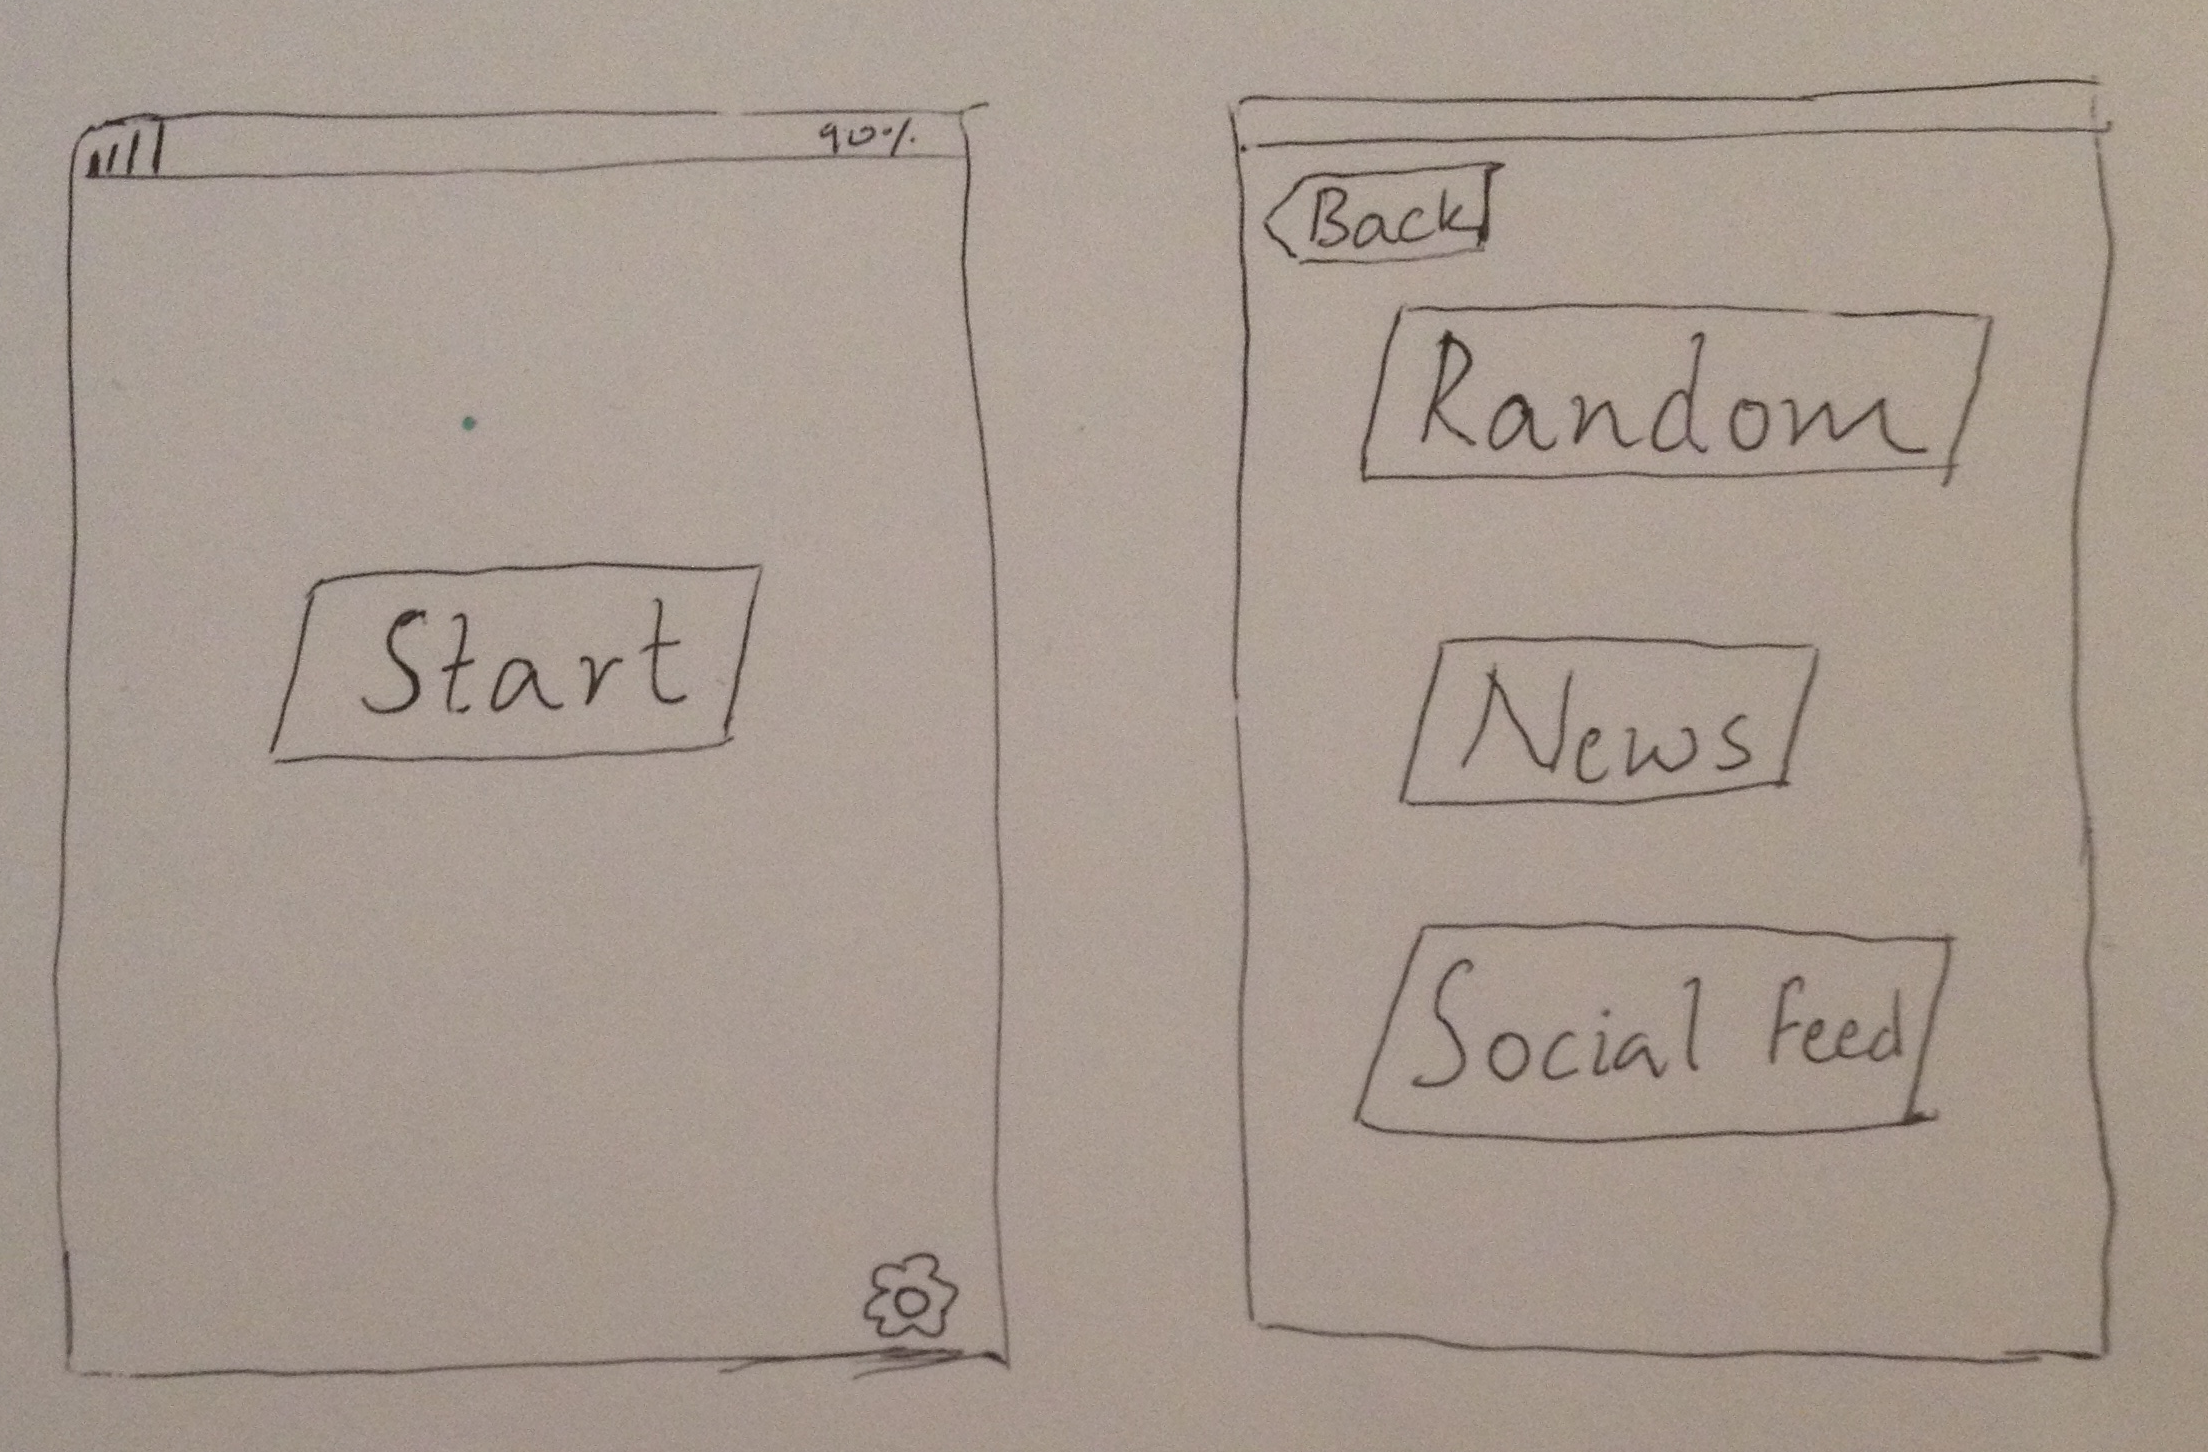 90%
Start
Back
Random
News
Social Feed